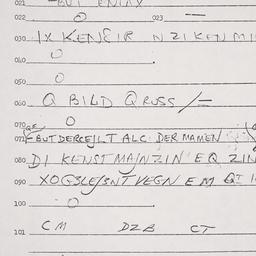 021 -BUT ENTAX
022 O 023 —
030 IX KENEIR NZIKENMI
040 O
050 O
060 Q BILD QRUSS /=
070 O
071 BUTDERCEJLT ALC DER MAMEN
080 DI KENSTMAJNZIN EQ ZIN
090 XOGSLEJSNT VEGN EM QT I
100 O
101 CM DZB CT